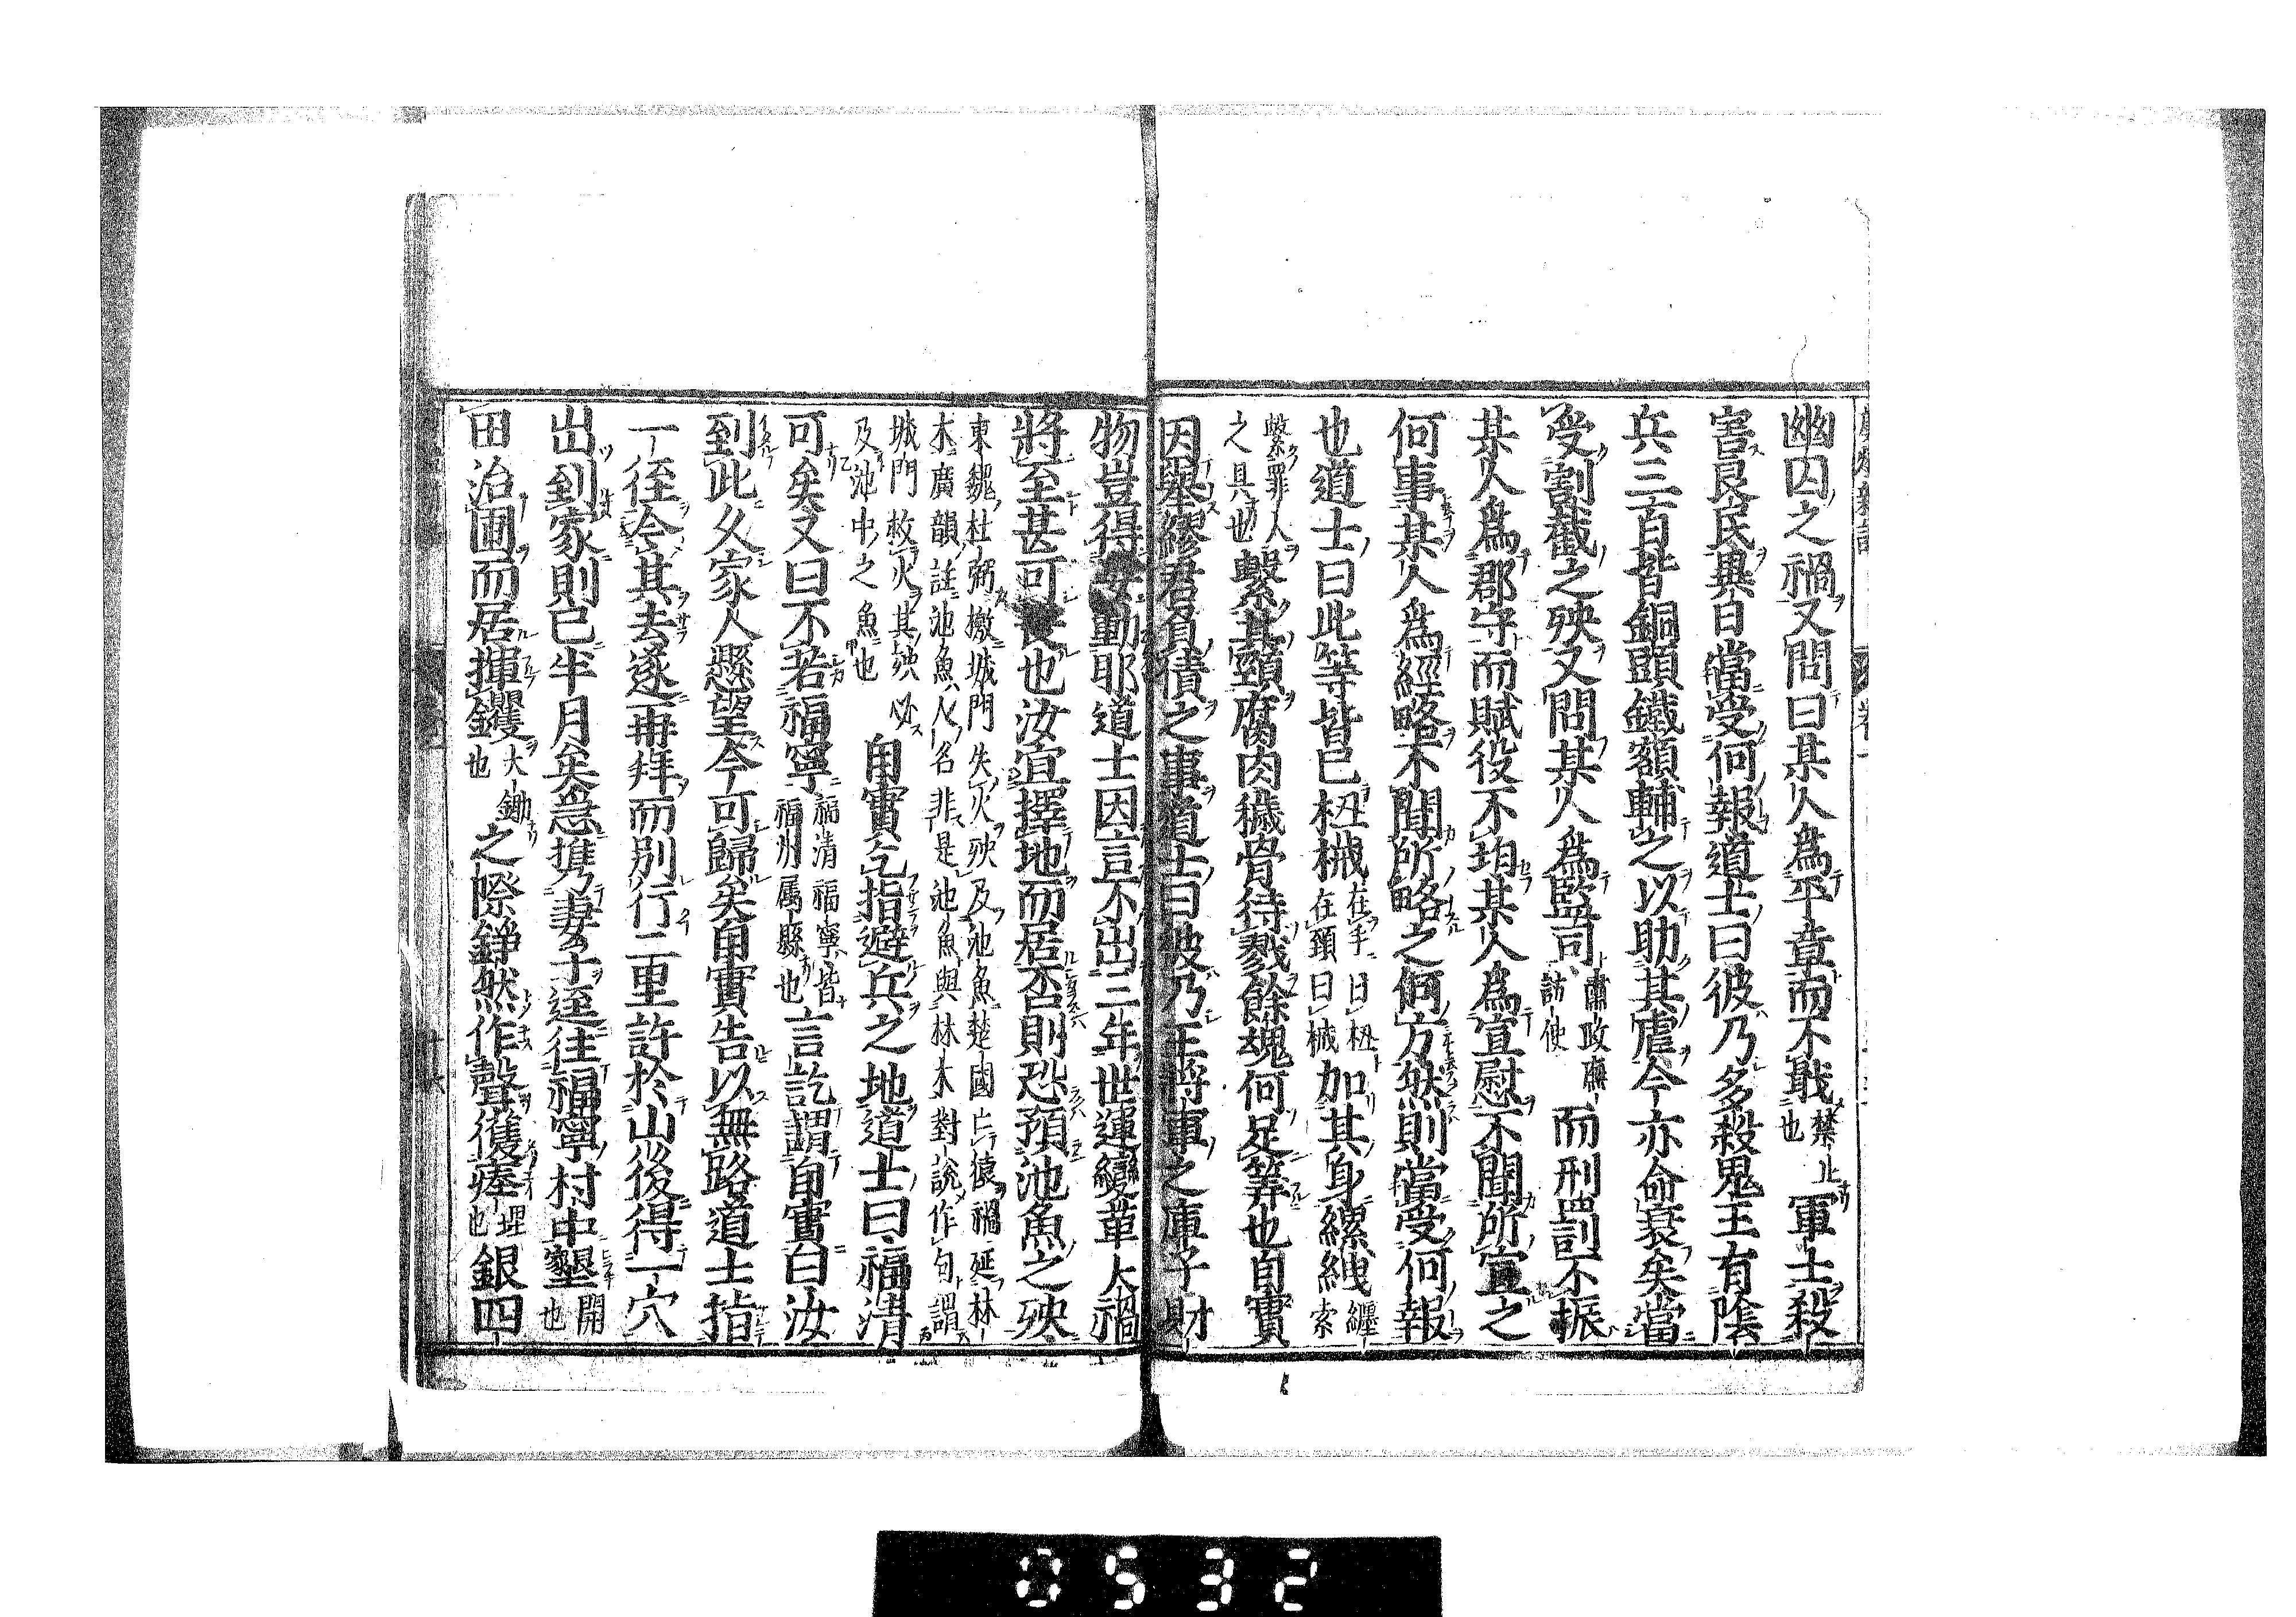 幽囚之禍又問曰某人爲平章而不戢禁止也軍士殺
害良民與曰當受何報道士曰彼乃多殺鬼王有陰
兵三百皆銅頭鐵額輔之以助其虐今亦命衰矣當
受割截之殃又問某人爲監司肅政廉訪使而刑罰不振
某人爲郡守而賦役不均某人爲宣慰不聞所宣之
何事某人爲經略不聞所略之何方然則當受何報
也道士曰此等皆已杻械在手曰杻在頸曰械加其身縲絏纏索
繫罪人之具也繫其頸腐肉穢骨待戮餘魂何足筭也自實
因舉繆君負債之事道士曰彼乃王將軍之庫子財
物豈得妄動耶道士因言不出三年世運變革大禍
將至甚可畏也汝宜擇地而居否則恐預池魚之殃
東魏杜弼檄城門失火殃及池魚楚國亡猿禍延林
木廣韻註池魚人名非是池魚與林木對說作句謂
城門救火其殃必及池中之魚也自實乞指避兵之地道士曰福清
可矣又曰不若福寧福清福寧皆福州属縣也言訖謂自實曰汝
到此久家人懸望今可歸矣自實告以無路道士指
一徑令其去遂再拜而別行二里許於山後得一穴
出到家則已半月矣急携妻子逕往福寧村中墾開也
田治圃而居揮钁大鋤也之際錚然作聲獲瘞埋也銀四
十六
0532